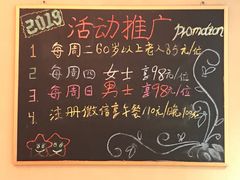 2019 活动推广 promotion
1 每周二60岁以上老人85元/位
2. 每周四 女士 享98元/位
3. 每周日 男士 享98元/位
4. 注册微信享午餐110元/晚108元